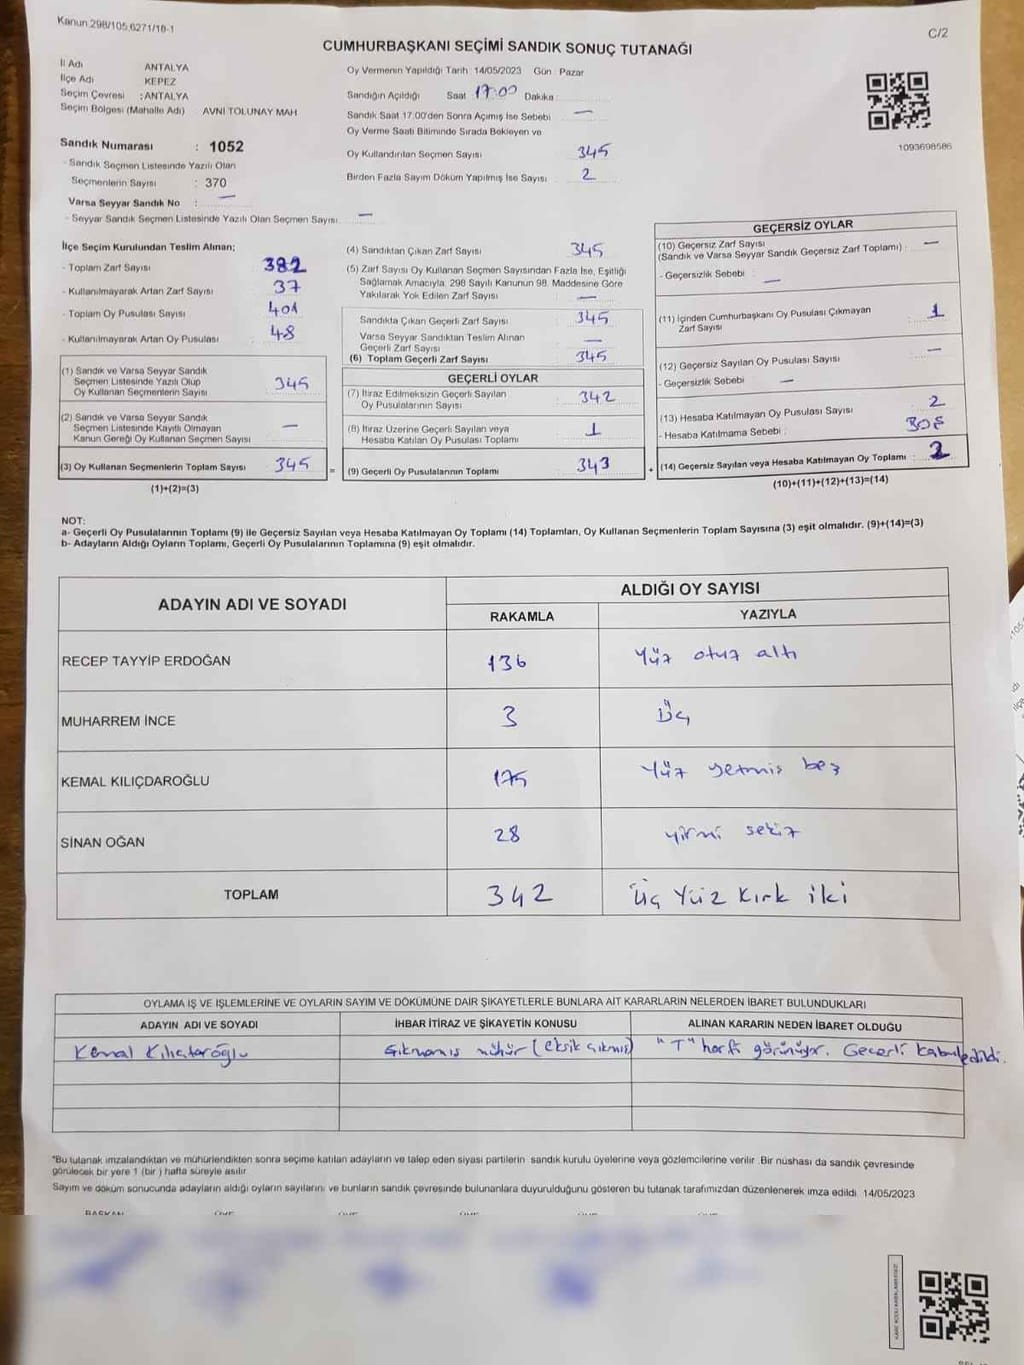 Kanun 298/105,6271/18-1
C/2
CUMHURBAŞKANI SEÇİMİ SANDIK SONUÇ TUTANAĞI
İl Adı ANTALYA
İlçe Adı KEPEZ
Seçim Çevresi : ANTALYA
Seçim Bölgesi (Mahalle Adı) AVNİ TOLUNAY MAH
Sandık Numarası : 1052
- Sandık Seçmen Listesinde Yazılı Olan
Seçmenlerin Sayısı : 370
Varsa Seyyar Sandık No : —
- Seyyar Sandık Seçmen Listesinde Yazılı Olan Seçmen Sayısı —
Oy Vermenin Yapıldığı Tarih 14/05/2023 Gün Pazar
Sandığın Açıldığı Saat 17:00 Dakika
Sandık Saat 17.00'den Sonra Açımış İse Sebebi —
Oy Verme Saati Bitiminde Sırada Bekleyen ve
Oy Kullandırılan Seçmen Sayısı 345
Birden Fazla Sayım Döküm Yapılmış İse Sayısı 2
1093698586
İlçe Seçim Kurulundan Teslim Alınan;
- Toplam Zarf Sayısı 382
- Kullanılmayarak Artan Zarf Sayısı 37
- Toplam Oy Pusulası Sayısı 401
- Kullanılmayarak Artan Oy Pusulası 48
(1) Sandık ve Varsa Seyyar Sandık
Seçmen Listesinde Yazılı Olup
Oy Kullanan Seçmenlerin Sayısı 345
(2) Sandık ve Varsa Seyyar Sandık
Seçmen Listesinde Kayıtlı Olmayan
Kanun Gereği Oy Kullanan Seçmen Sayısı —
(3) Oy Kullanan Seçmenlerin Toplam Sayısı 345 =
(1)+(2)=(3)
(4) Sandıktan Çıkan Zarf Sayısı 345
(5) Zarf Sayısı Oy Kullanan Seçmen Sayısından Fazla İse, Eşitliği
Sağlamak Amacıyla, 298 Sayılı Kanunun 98. Maddesine Göre
Yakılarak Yok Edilen Zarf Sayısı —
Sandıkta Çıkan Geçerli Zarf Sayısı 345
Varsa Seyyar Sandıktan Teslim Alınan
Geçerli Zarf Sayısı —
(6) Toplam Geçerli Zarf Sayısı 345
GEÇERLİ OYLAR
(7) İtiraz Edilmeksizin Geçerli Sayılan
Oy Pusulalarının Sayısı 342
(8) İtiraz Üzerine Geçerli Sayılan veya
Hesaba Katılan Oy Pusulası Toplamı 1
(9) Geçerli Oy Pusulalarının Toplamı 343 +
GEÇERSİZ OYLAR
(10) Geçersiz Zarf Sayısı
(Sandık ve Varsa Seyyar Sandık Geçersiz Zarf Toplamı) : —
- Geçersizlik Sebebi —
(11) İçinden Cumhurbaşkanı Oy Pusulası Çıkmayan
Zarf Sayısı 1
(12) Geçersiz Sayılan Oy Pusulası Sayısı —
- Geçersizlik Sebebi —
(13) Hesaba Katılmayan Oy Pusulası Sayısı 2
- Hesaba Katılmama Sebebi :
(14) Geçersiz Sayılan veya Hesaba Katılmayan Oy Toplamı : 2
(10)+(11)+(12)+(13)=(14)
NOT:
a- Geçerli Oy Pusulalarının Toplamı (9) ile Geçersiz Sayılan veya Hesaba Katılmayan Oy Toplamı (14) Toplamları, Oy Kullanan Seçmenlerin Toplam Sayısına (3) eşit olmalıdır. (9)+(14)=(3)
b- Adayların Aldığı Oyların Toplamı, Geçerli Oy Pusulalarının Toplamına (9) eşit olmalıdır.
ADAYIN ADI VE SOYADI ALDIĞI OY SAYISI
RAKAMLA YAZIYLA
RECEP TAYYİP ERDOĞAN 136 Yüz otuz altı
MUHARREM İNCE 3 Üç
KEMAL KILIÇDAROĞLU 175 Yüz yetmis beş
SİNAN OĞAN 28 yirmi sekiz
TOPLAM 342 Üç Yüz Kırk iki
OYLAMA İŞ VE İŞLEMLERİNE VE OYLARIN SAYIM VE DÖKÜMÜNE DAİR ŞİKAYETLERLE BUNLARA AİT KARARLARIN NELERDEN İBARET BULUNDUKLARI
ADAYIN ADI VE SOYADI İHBAR İTİRAZ VE ŞİKAYETİN KONUSU ALINAN KARARIN NEDEN İBARET OLDUĞU
Kemal Kılıçtaroğlu Çıkmamıs mühür (eksik çıkmıs) "T" harfi görünüyor. Geçerli kabul edildi.
"Bu tutanak imzalandıktan ve mühürlendikten sonra seçime katılan adayların ve talep eden siyasi partilerin sandık kurulu üyelerine veya gözlemcilerine verilir .Bir nüshası da sandık çevresinde
görülecek bir yere 1 (bir ) hafta süreyle asılır
Sayım ve döküm sonucunda adayların aldığı oyların sayılarını ve bunların sandık çevresinde bulunanlara duyurulduğunu gösteren bu tutanak tarafımızdan düzenlenerek imza edildi 14/05/2023